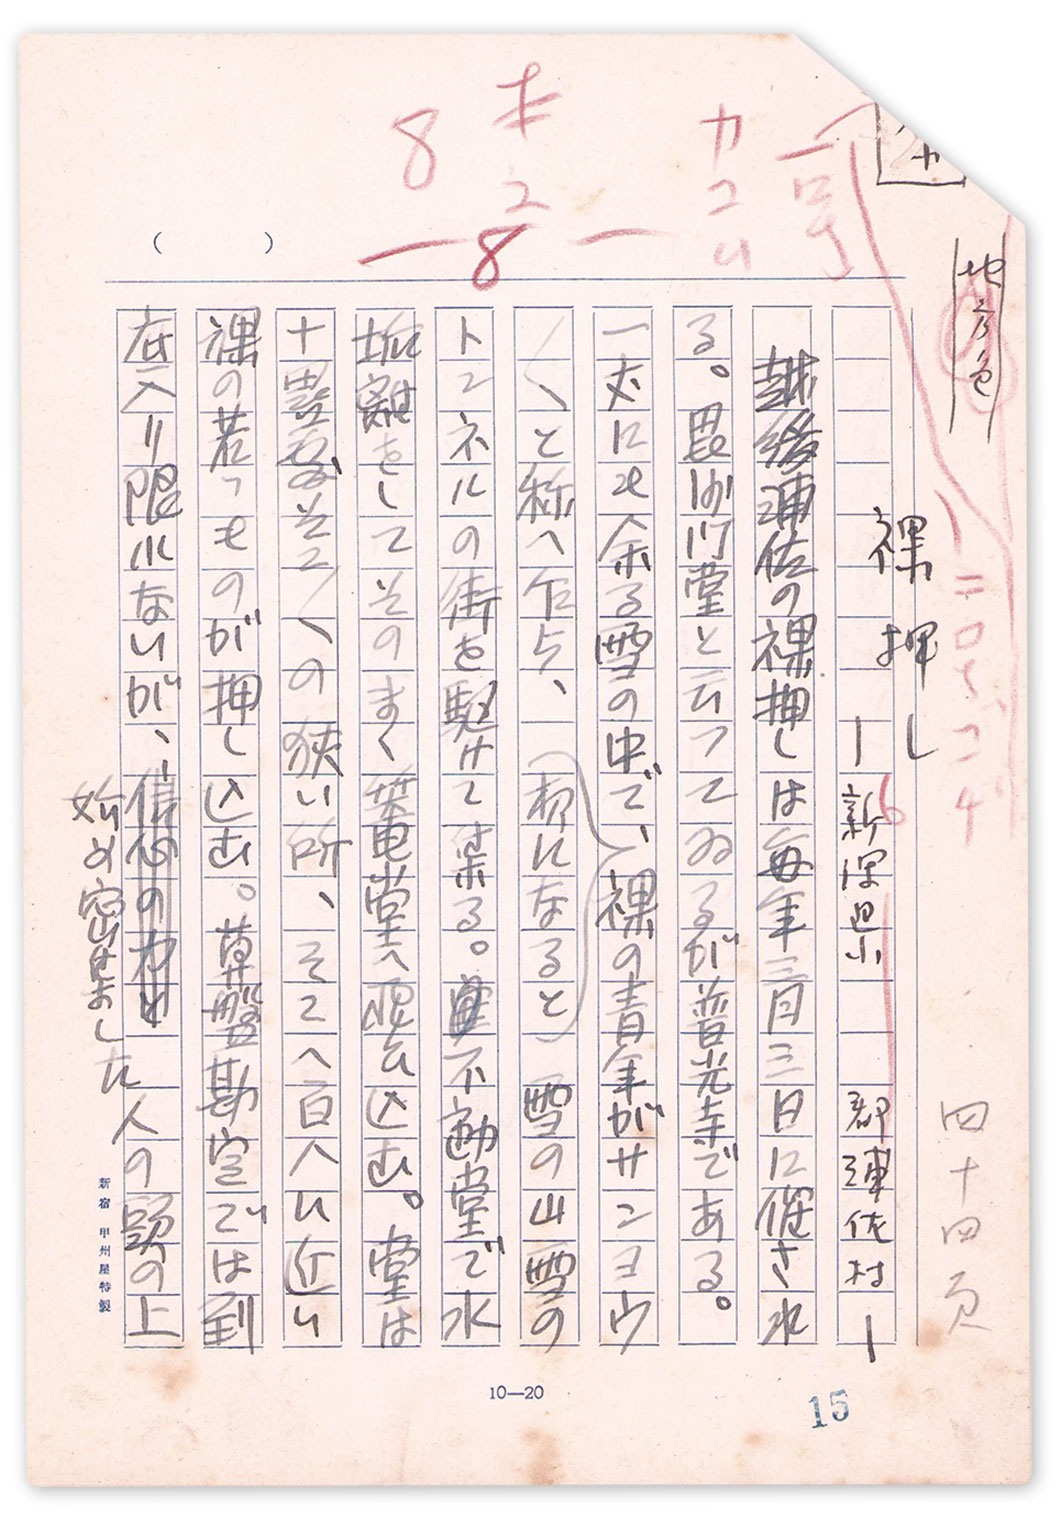 地方色
裸押し
―新潟県　　郡浦佐村―
越後浦佐の裸押しは毎年三月三日に催され
る。毘沙門堂と云つてゐるが普光寺である。
一丈にも余る雪の中で、裸の青年がサンヨウ
〱と称へ乍ら、(夜になると)雪の山雪の
トンネルの街を駆けて来る。不動堂で水
垢離をしてそのまゝ篭堂へ飛び込む。堂は
十畳敷そこ〱の狭い所、そこへ百人に近い
裸の若いものが押し込む。算盤勘定では到
底入り限れないが、信心の力と人の頭の上
始め密集した
四十四頁
カコム
8
8
10―20
15
新宿　甲州屋特製